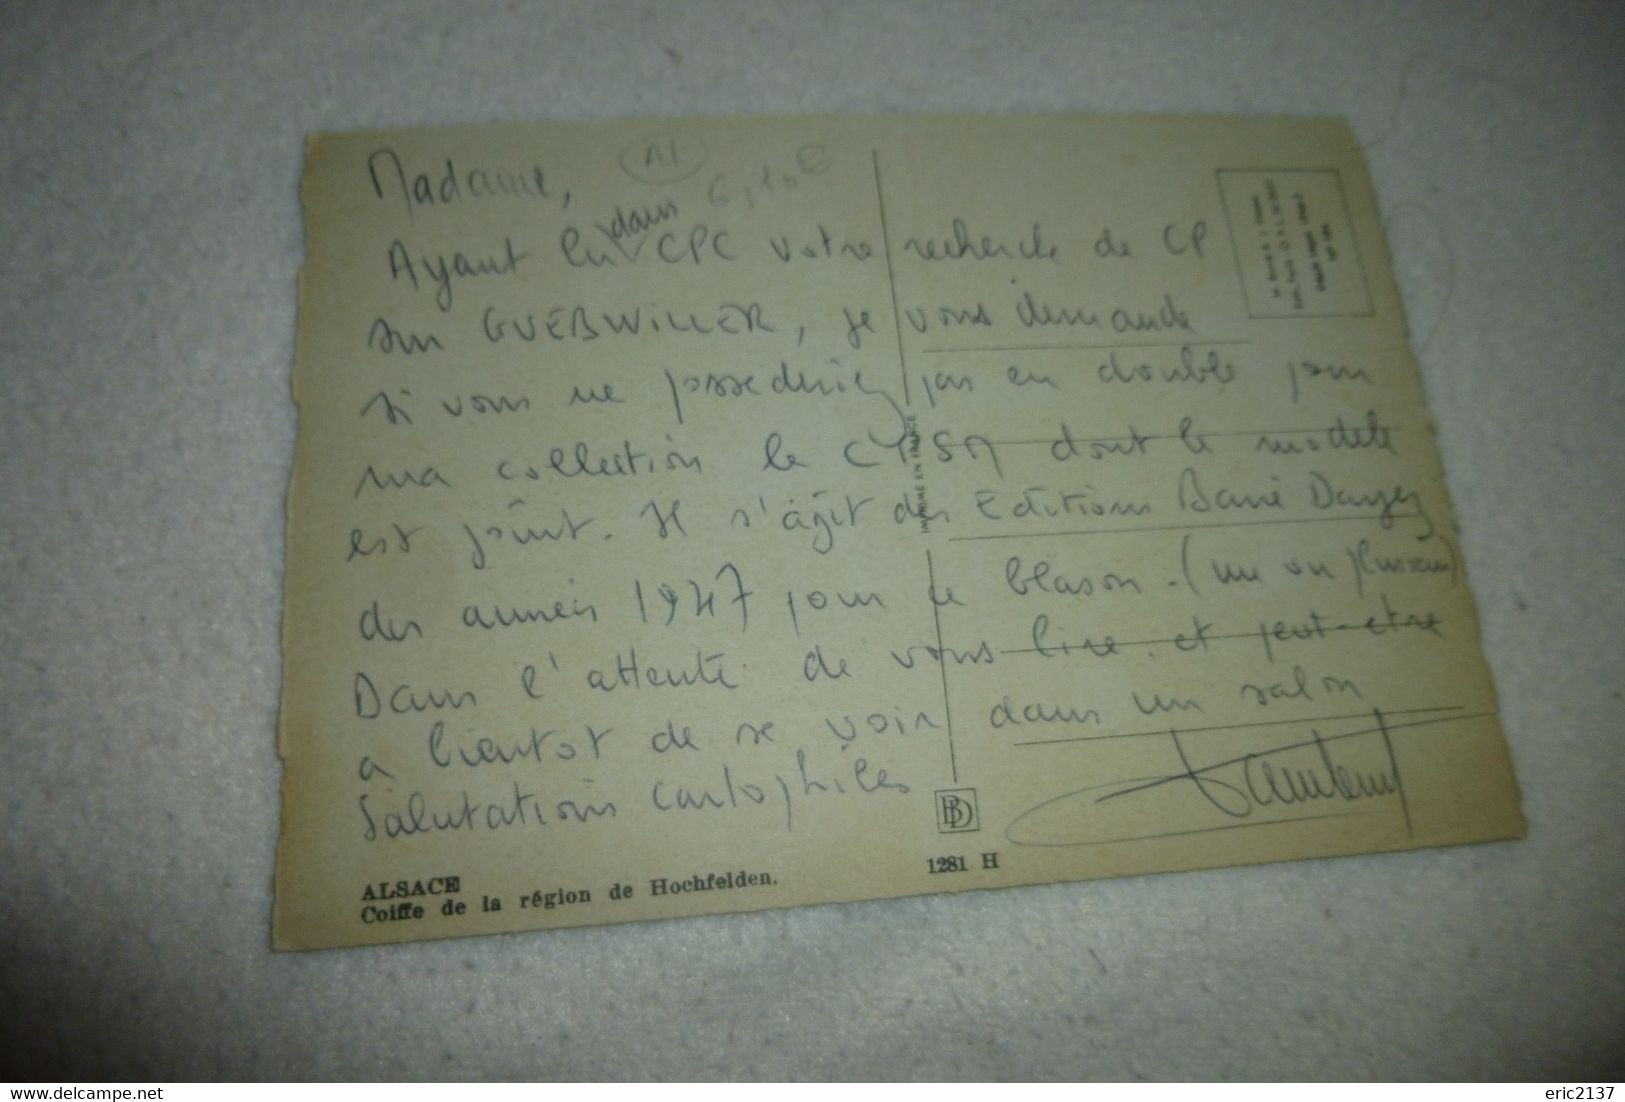 Madame,
A1
Ayant lu dans CPC votre recherche de CP
sur GUEBWILLER, je vous demande
si vous ne possederiez pas en double pour
ma collection la CPSM dont le modele
est joint. Il s'agit des Editions Barré Dayez
des années 1947 pour le blason. (un ou plusieurs)
Dans l'attente de vous lire et peut-etre
a bientot de se voir dans un salon
Salutations cartophiles
IMPRIMÉ EN FRANCE
BD
1281 H
ALSACE
Coiffe de la région de Hochfelden.
delcampe.net
eric2137